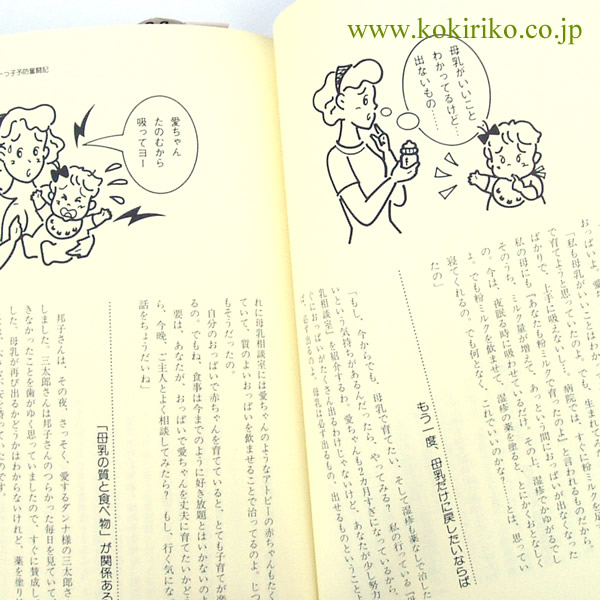 www.kokiriko.co.jp
母乳がいいこと
わかってるけど…
出ないもの……
おっぱいよ。愛
「私も母乳がいいことはわか
で育てようと思っていたのよ。でも、生まれてみ
ばかりで、上手に吸えないし。病院では、すぐに粉ミ
私の母にも『あなたも粉ミルクで育ったのよ』と言われるものだから。
そのうち、ミルク量が増えて、あっという間におっぱいが出なくなった
の。今は、夜眠る時に吸わせているだけ。その上、湿疹でかゆがるでし
よ。でも粉ミルクを飲ませて、湿疹の薬を塗ると、とにかくおとなしく
寝てくれるの。でも何となく、これでいいのかな?……とは、思ってい
たの」
もう一度、母乳だけに戻したいならば
「もし、今からでも、母乳で育てたい、そして湿疹も薬なしで治した
いという気持ちがあるんだったら、やってみる? 私の行っている『母
乳相談室』を紹介するわ。愛ちゃんも7カ月すぎになっているから、す
ぐにおっぱいがたくさん出るわけじゃないけど、あなたが少し努力
れば、必ず出るのよ。母乳は必ず出るもの、出せるものということよ
一つ子予防奮闘記
愛ちゃん
たのむから
吸ってヨー
れに母乳相談室には愛ちゃんのようなアトピーの赤ちゃんもたく
ていて、質のよいおっぱいを飲ませることで治ってるのよ。じつ
もそうだったの。
自分のおっぱいで赤ちゃんを育てていると、とても子育てが楽
るの。でもね、食事は今までのように好き放題とはいかないのよ
要は、あなたが、おっぱいで愛ちゃんを丈夫に育てたいかどう
ら、今晩、ご主人とよく相談してみたら? もし、行く気にな
話をちょうだいね」
「母乳の質と食べ物」が関係ある
邦子さんは、その夜、さっそく、愛するダンナ様の三太郎さ
しました。三太郎さんは邦子さんのつらかった毎日を見ていて
きなかったことを歯がゆく思っていましたので、すぐに賛成し
した。母乳が再び出るかどうかはわからないけれど、薬を塗り